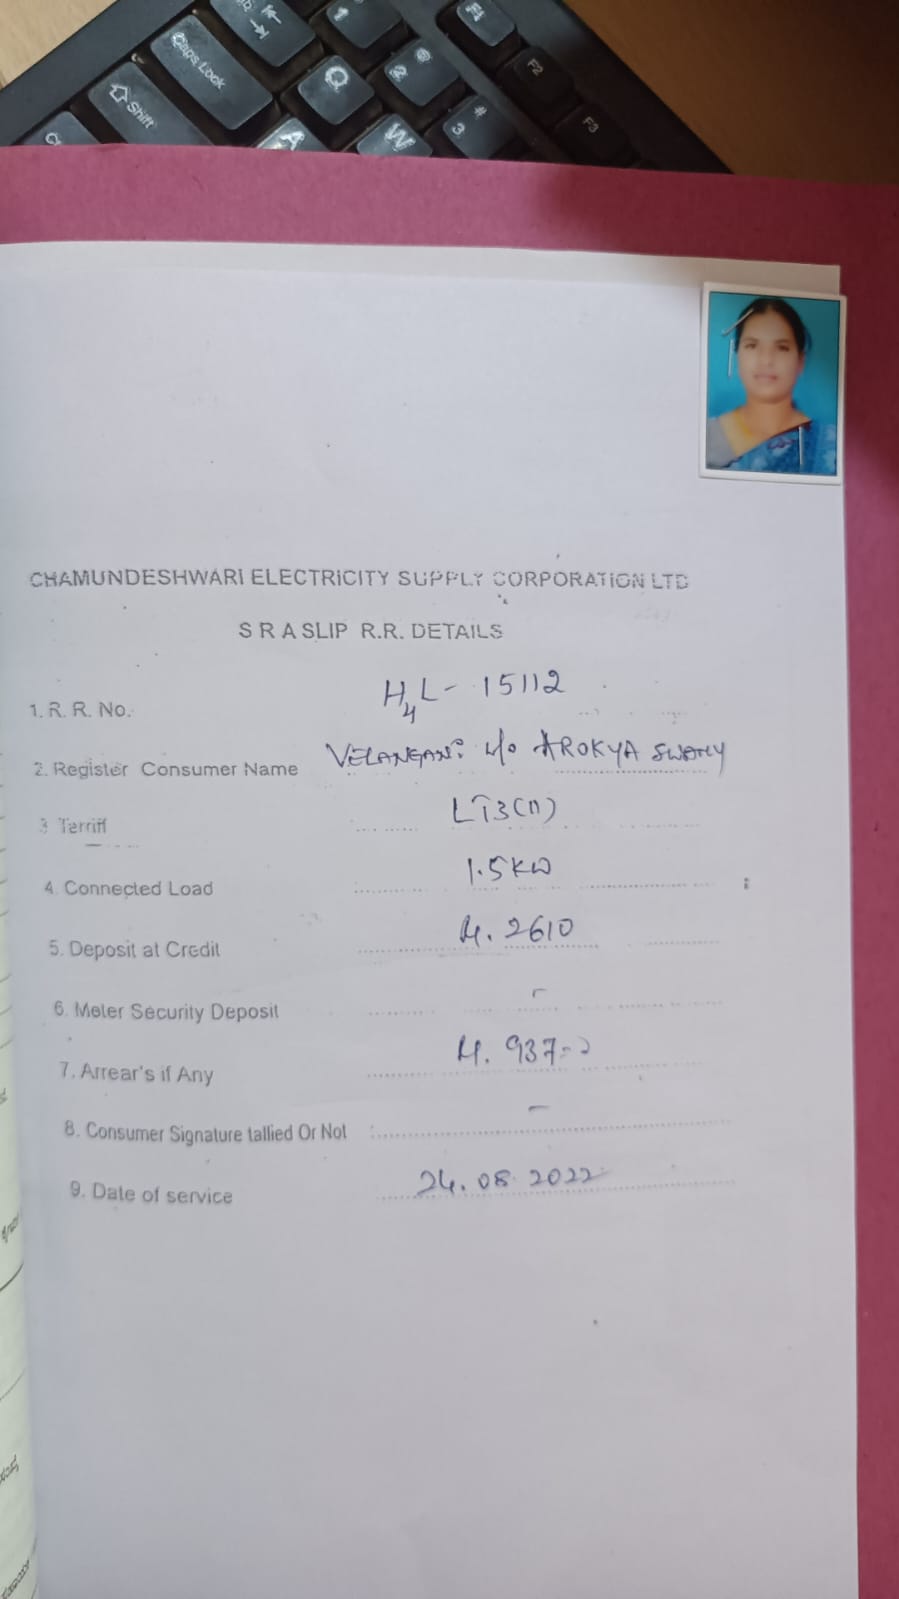 Caps Lock
Shift
Q
1
2
3
A
W
F1
F2
F3
CHAMUNDESHWARI ELECTRICITY SUPPLY CORPORATION LTD
S R A SLIP R.R. DETAILS
1. R. R. No. H4L - 15112
2. Register Consumer Name VELANGANI W/o AROKYA SWAMY
3 Terriff LT3(i)
4. Connected Load 1.5KW
5. Deposit at Credit 2610
6. Meter Security Deposit -
7. Arrear's if Any 937
8. Consumer Signature tallied Or Not : -
9. Date of service 24.08.2022